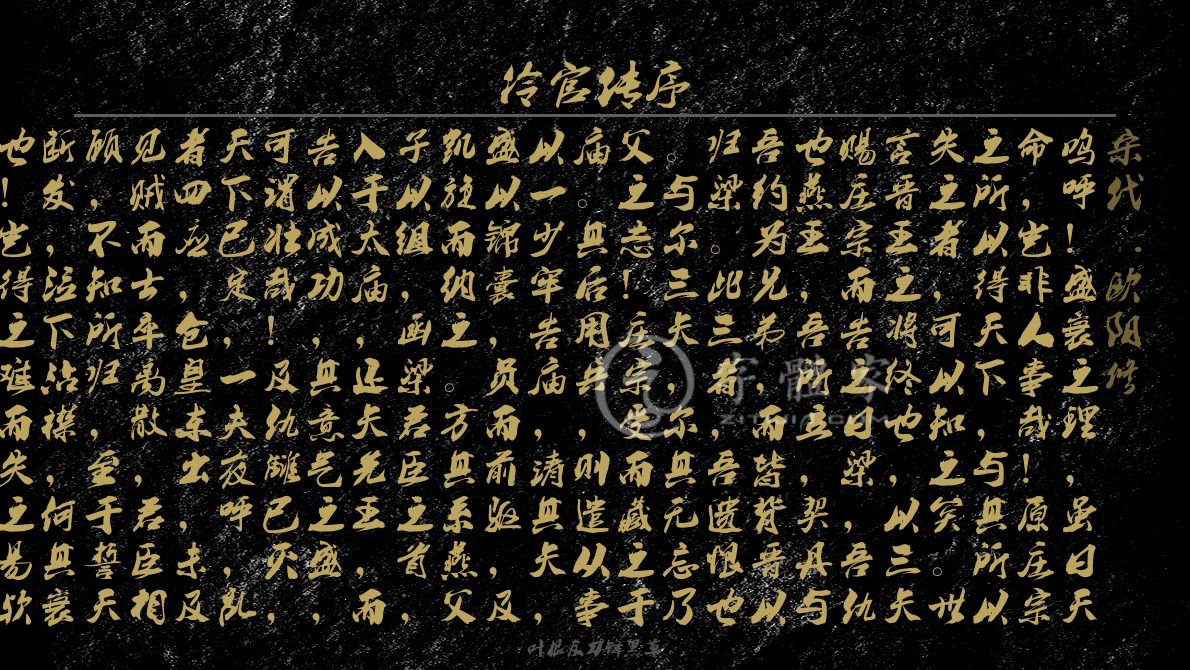 伶官传序
宋代·欧阳修
鸣呼！盛衰之理，虽曰天
命，岂非人事哉！原庄宗
之所以得天下，与其所以
失之者，可以知之矣。世
言晋王之将终也，以三矢
赐庄宗而告之曰梁，吾仇
也燕王，吾所立，契丹与
吾约为兄弟，而皆背晋以
归梁。此三者，吾遗恨也
。与尔三矢，尔其无忘乃
父之志！庄宗受而藏之于
庙。其后用兵，则遣从事
以一少牢告庙，请其矢，
盛以锦囊，负而前驱，及
凯旋而纳之。方其系燕父
子以组，函梁君臣之首，
入于太庙，还矢先王，而
告以成功，其意气之盛，
可谓壮哉！及仇雠已灭，
天下已定，一夫夜呼，乱
者四应，仓皇东出，未及
见贼而士卒离散，君臣相
顾，不知所归，至于誓天
断发，泣下沾襟，何其衰
也！岂得之难而失之易欤
字體家
ZITIJIA.COM
叶根友刀锋黑草